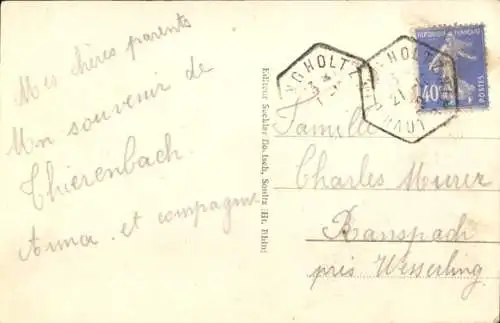 Mes chères parents
Un souvenir de
Thierenbach.
Anna et compagnie
Editeur Seckler Sentz (Ht. Rhin)
NGHOLTZ
21
RÉPUBLIQUE FRANÇAISE
40
POSTES
Famille
Charles Murer
Ranspach
près Wesserling